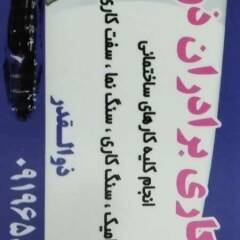 کاری برادران ذو
انجام کلیه کارهای ساختمانی
سنگ کاری ، سنگ نما ، سفت کاری
ذوالـقدر
۰۹۱۹۶۵